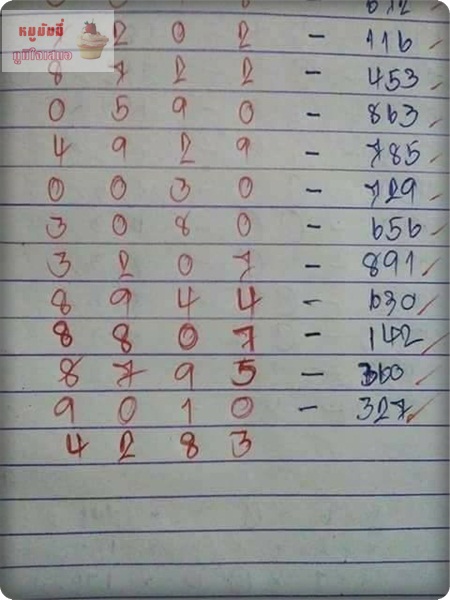 หมูมังมี่
ภูมิใจเสนอ
2 0 2 - 116
8 7 2 2 - 453
0 5 9 0 - 863
4 9 2 9 - 785
0 0 3 0 - 729
3 0 8 0 - 656
3 2 0 7 - 891
8 9 4 4 - 630
8 8 0 7 - 142
8 7 9 5 - 360
9 0 1 0 - 327
4 2 8 3